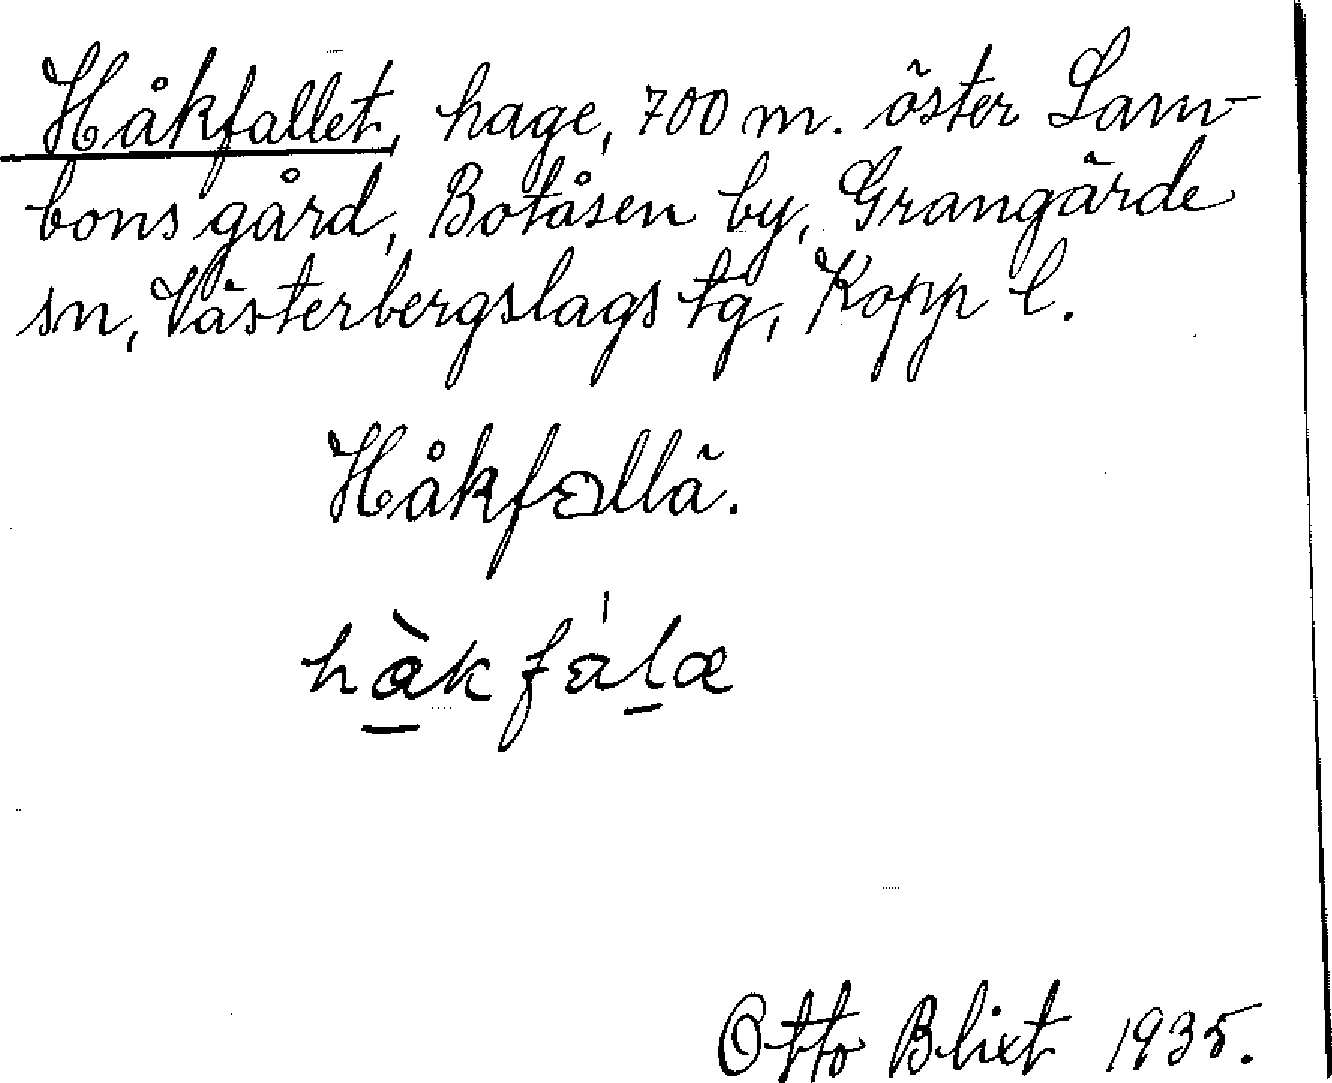 Håkfallet, hage, 700 m. öster Lam-
bons gård, Botåsen by, Grangärde
sn, Västerbergslags tg, Kopp l.
Håkfallä.
hàkfálæ
Otto Blixt 1935.